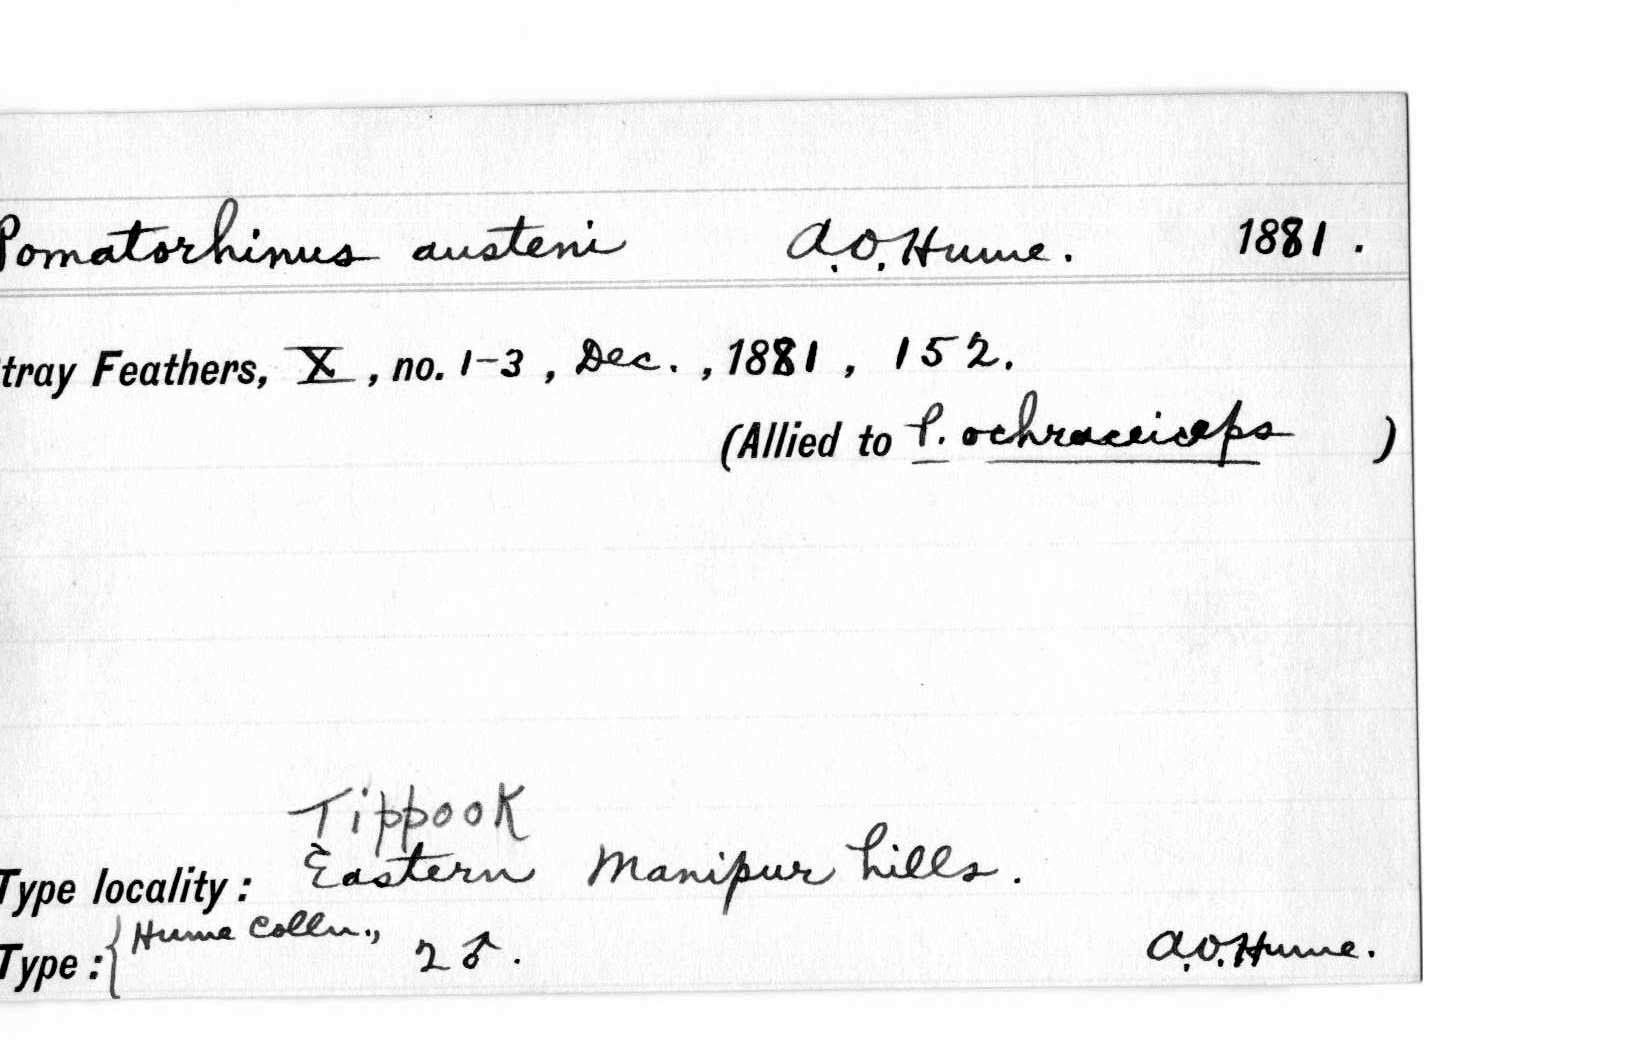 Pomatorhinus austeni A.O. Hume. 1881.
tray Feathers, X, no. 1-3, Dec., 1881, 152.
(Allied to P. ochraceiceps )
Tippook
Type locality: Eastern Manipur hills.
Type: { Hume Colln., 2 ♂. A.O. Hume.